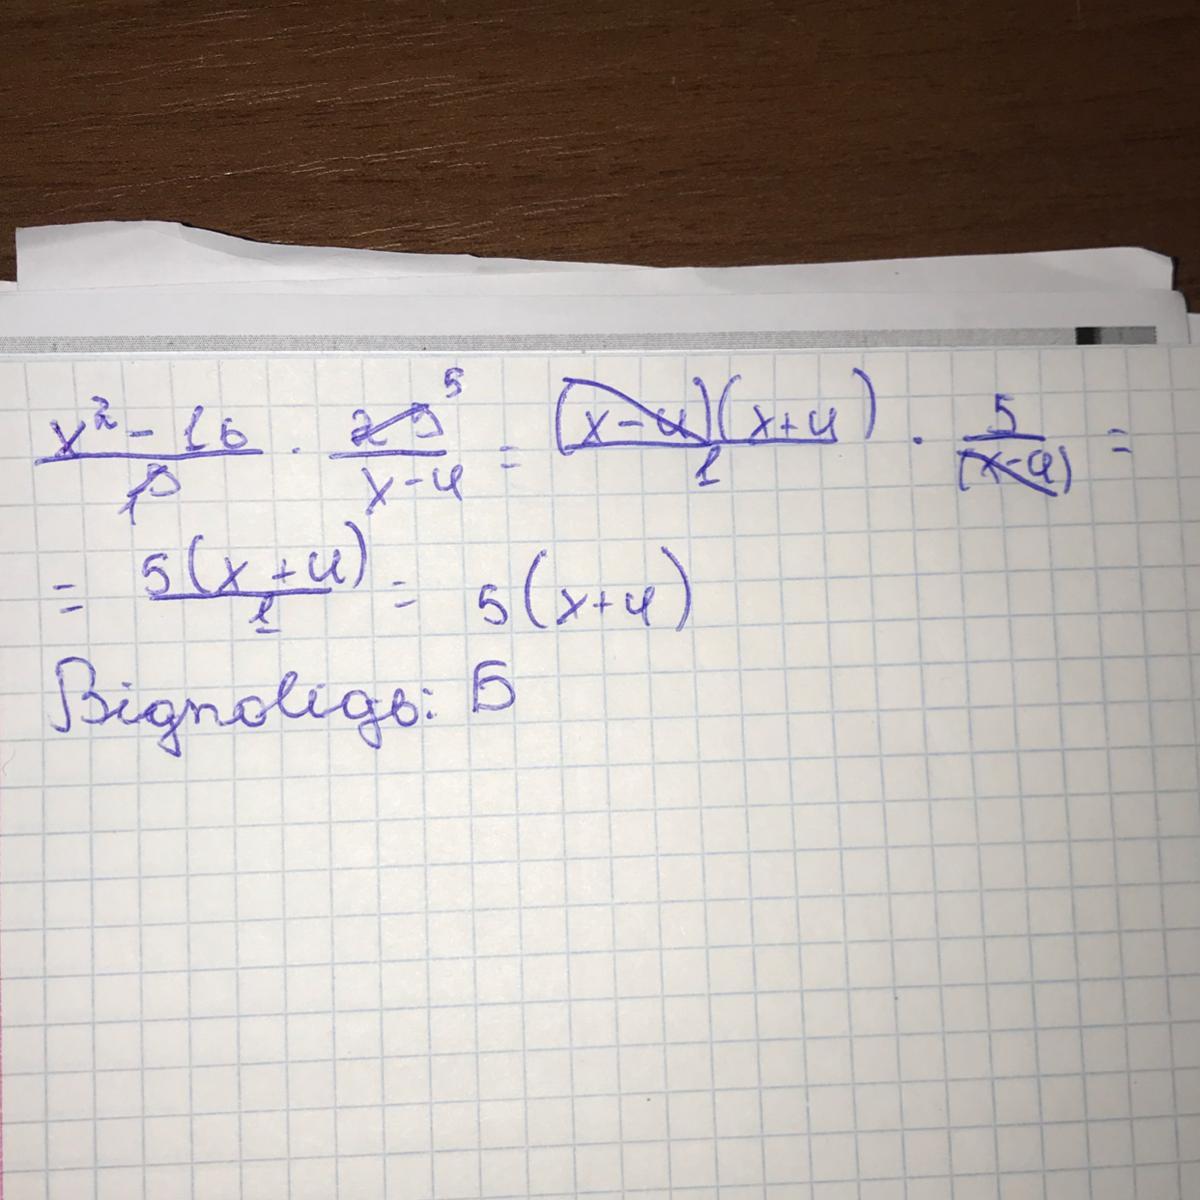 x² - 16/5 · 25 5/x-4 = (x-4)(x+4)/1 · 5/(x-4) =
= 5(x+4)/1 = 5(x+4)
Відповідь: Б